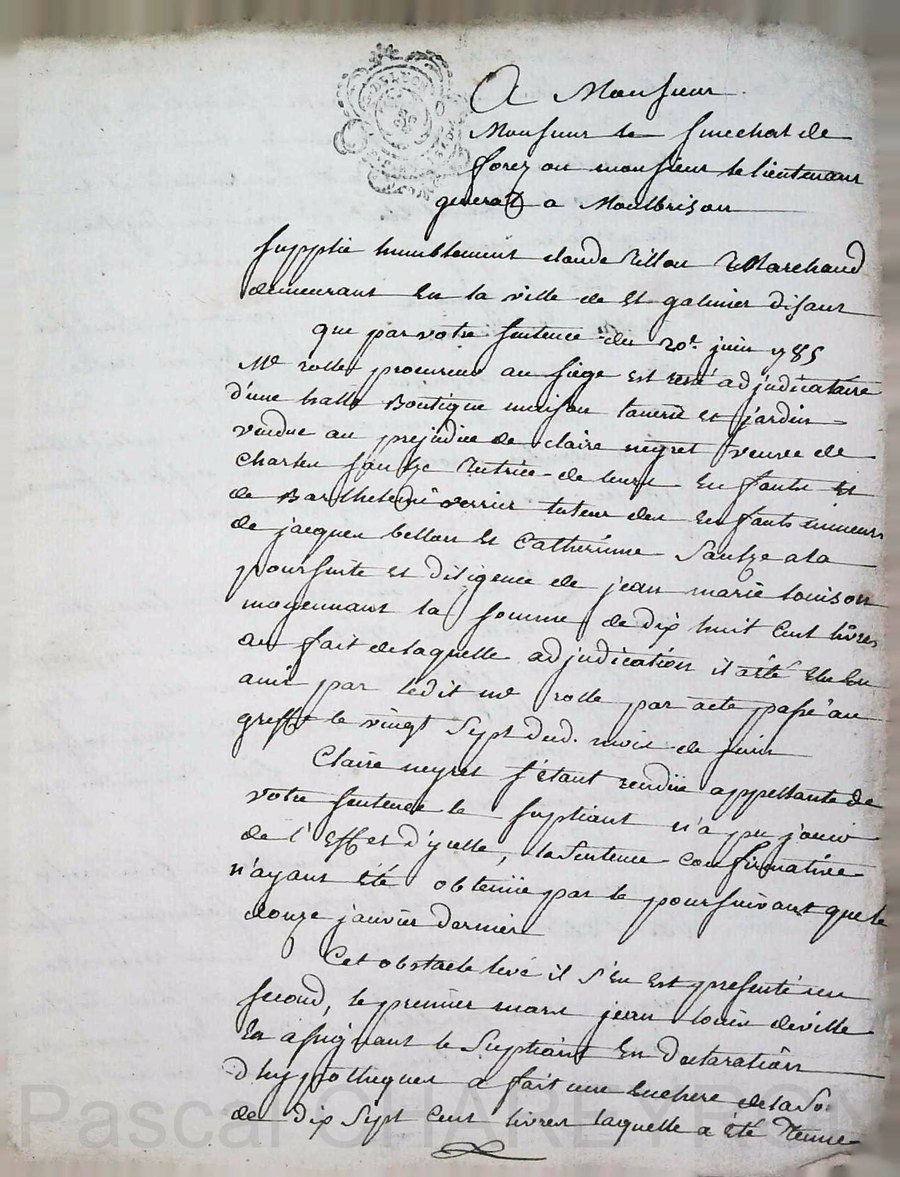 A Monsieur
Monsieur le senechal de
forez ou monsieur le lieutenant
general a Montbrison
Supplie humblement claude Marchand
demeurant en la ville de St galmier disant
que par votre sentence du 20e. juin 1785
Me rolle procureur au siége est resté adjudicataire
d'une halle Boutique maison tanerie et jardin
vendue au prejudice de claire negret veuve de
charles sauze tutrice de leurs enfants et
de Barthelemi verrier tuteur des enfants mineurs
de jacques bellon et Catherinne Sauze a la
poursuite et diligence de jean marie louison
moyennant la somme de dix huit cent livres
au fait de laquelle adjudication il a été élu en
ami par ledit me rolle par acte passé au
greffe le vingt Sept dud. mois de juin
Claire negret s'étant rendüe appellante de
votre sentence le supliant n'a pu jouir
de l'Effet d'ycelle, la Sentence confirmative
n'ayant été obtenüe par le poursuivant que le
douze janvier dernier
Cet obstacle levé il s'en est presenté un
second, le premier mars jean louis deville
en assignant le Supliant en declaration
d'hypotheques a fait une enchere de la So.
de dix Sept cent livres laquelle a été
Pascal CHAREYRON